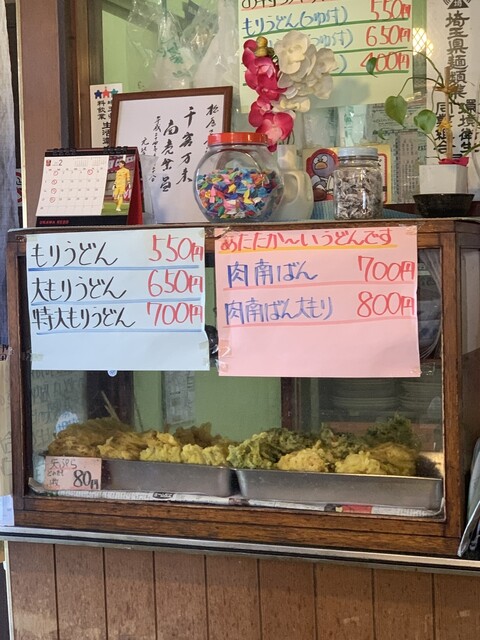 もりうどん(つゆ付) 550円
(つゆ付) 650円
付) 400円
埼玉県麺類業
環境衛生
同業組合
千客万来
商売繁盛
2
もりうどん 550円
大もりうどん 650円
特大もりうどん 700円
あたたか〜いうどんです
肉南ばん 700円
肉南ばん大もり 800円
天ぷら
80円